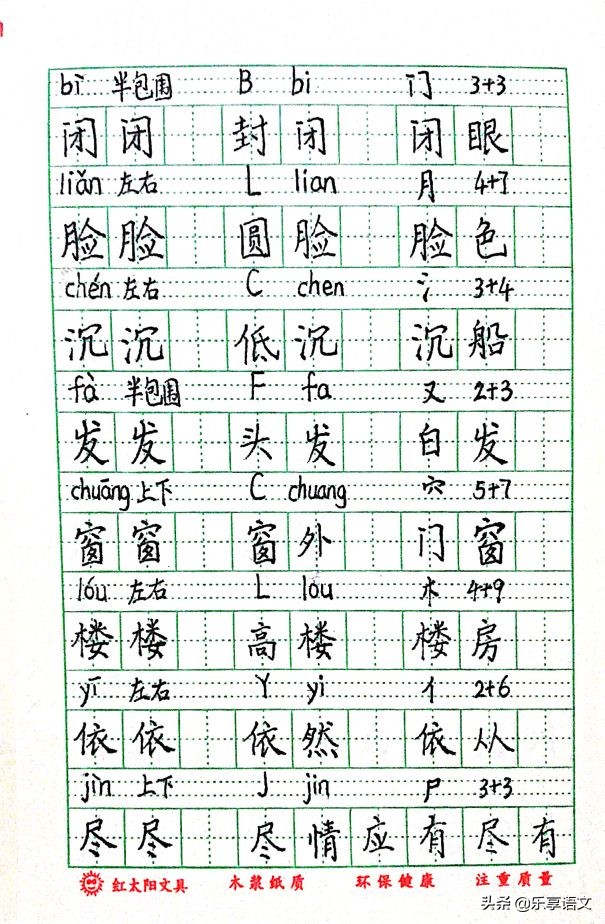 bì 半包围 B bi 门 3+3
闭 闭 封 闭 闭 眼
liǎn 左右 L lian 月 4+7
脸 脸 圆 脸 脸 色
chén 左右 C chen 氵 3+4
沉 沉 低 沉 沉 船
fà 半包围 F fa 又 2+3
发 发 头 发 白 发
chuāng 上下 C chuang 穴 5+7
窗 窗 窗 外 门 窗
lóu 左右 L lou 木 4+9
楼 楼 高 楼 楼 房
yī 左右 Y yi 亻 2+6
依 依 依 然 依 从
jìn 上下 J jin 尸 3+3
尽 尽 尽 情 应 有 尽 有
红太阳文具 木浆纸质 环保健康 注重质量
头条 @乐享语文